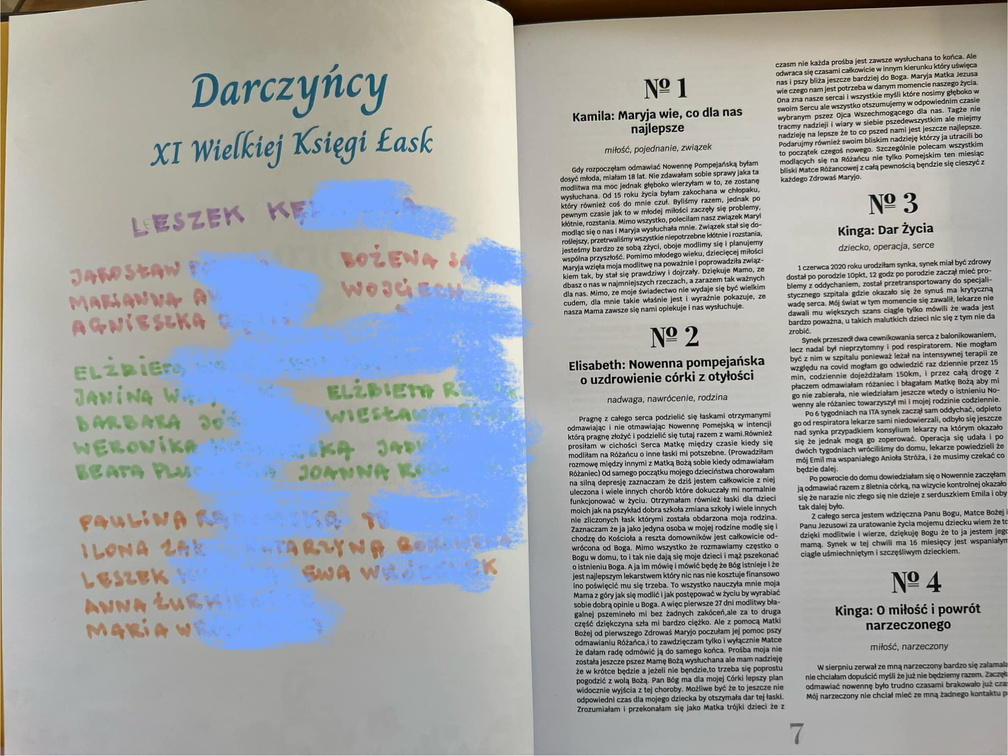 Darczyńcy
XI Wielkiej Księgi Łask
LESZEK
JAROSŁAW
BOŻENA
MARIANNA
WOJCIECH
AGNIESZKA
ELŻBIETA
JANINA
ELŻBIETA
BARBARA
WIESŁAWA
WERONIKA
BEATA
JOANNA
PAULINA
ILONA
LESZEK
ANNA
MARIA
№ 1
Kamila: Maryja wie, co dla nas
najlepsze
miłość, pojednanie, związek
Gdy rozpoczęłam odmawiać Nowennę Pompejańską byłam
dosyć młoda, miałam 18 lat. Nie zdawałam sobie sprawy jaka ta
modlitwa ma moc jednak głęboko wierzyłam w to, ze zostanę
wysłuchana. Od 15 roku życia byłam zakochana w chłopaku,
który również coś do mnie czuł. Byliśmy razem, jednak po
pewnym czasie jak to w młodej miłości zaczęły się problemy,
kłótnie, rozstania. Mimo wszystko, poleciłam nasz związek Maryi
modląc się o nas i Maryja wysłuchała mnie. Związek stał się do-
roślejszy, przetrwaliśmy wszystkie niepotrzebne kłótnie i rozstania,
jesteśmy bardzo ze sobą zżyci, oboje modlimy się i planujemy
wspólna przyszłość. Pomimo młodego wieku, dziecięcej miłości
Maryja wzięła moja modlitwę na poważnie i poprowadziła zwią-
kiem tak, by stał się prawdziwy i dojrzały. Dziękuje Mamo, ze
dbasz o nas w najmniejszych rzeczach, a zarazem tak ważnych
dla nas. Mimo, ze moje świadectwo nie wydaje się być wielkim
cudem, dla mnie takie właśnie jest i wyraźnie pokazuje, ze
nasza Mama zawsze się nami opiekuje i nas wysłuchuje.
№ 2
Elisabeth: Nowenna pompejańska
o uzdrowienie córki z otyłości
nadwaga, nawrócenie, rodzina
Pragnę z całego serca podzielić się łaskami otrzymanymi
odmawiając i nie otmawiając Nowennę Pomejską w intencji
którą pragnę złożyć i podzielić się tutaj razem z wami.Również
prosiłam w cichości Serca Matkę między czasie kiedy się
modliłam na Różańcu o inne łaski mi potszebne. (Prowadziłam
rozmowę między innymi z Matką Bożą sobie kiedy odmawiałam
Różaniec) Od samego początku mojego dzieciństwa chorowałam
na silną depresję zaznaczam że dziś jestem całkowicie z niej
uleczona i wiele innych chorób które dokuczały mi normalnie
funkcjonować w życiu. Otrzymałam również łaski dla dzieci
moich jak na pszykład dobra szkoła zmiana szkoły i wiele innych
nie zliczonych łask którymi została obdarzona moja rodzina.
Zaznaczam że ja jako jedyna osoba w mojej rodzine modlę się i
chodzę do Kościoła a reszta domowników jest całkowicie od-
wrócona od Boga. Mimo wszystko że rozmawiamy częstko o
Bogu w domu, to i tak nie dają się moje dzieci i mąż pszekonać
o istnieniu Boga. A ja im mówię i mówić będę że Bóg istnieje i że
jest najlepszym lekarstwem który nic nas nie kosztuje finansowo
ino poświęcić mu się trzeba. To wszystko nauczyła mnie moja
Mama z góry jak się modlić i jak postępować w życiu by wyrabiać
sobie dobrą opinie u Boga. A więc pierwsze 27 dni modlitwy bła-
galnej pszeminęło mi bez żadnych zakóceń,ale za to druga
część dziękczyna szła mi bardzo ciężko. Ale z pomocą Matki
Bożej od pierwszego Zdrowaś Maryjo poczułam jej pomoc pszy
odmawianiu Różańca,i to zawdzięczam tylko i wyłącznie Matce
że dałam radę odmówić ją do samego końca. Prośba moja nie
została jeszcze pszez Mamę Bożą wysłuchana ale mam nadzieję
że w krótce będzie a jeżeli nie będzie,to trzeba się poprostu
pogodzić z wolą Bożą. Pan Bóg ma dla mojej Córki lepszy plan
widocznie wyjścia z tej choroby. Możliwe być że to jeszcze nie
odpowiedni czas dla mojego dziecka by otszymała dar tej łaski.
Zrozumiałam i przekonałam się jako Matka trójki dzieci że z
czasm nie każda prośba jest zawsze wysłuchana to końca. Ale
odwraca się czasami całkowicie w innym kierunku który uświęca
nas i pszy bliża jeszcze bardziej do Boga. Maryja Matka Jezusa
wie czego nam jest potrzeba w danym momencie naszego życia.
Ona zna nasze sercai i wszystkie myśli które nosimy głęboko w
swoim Sercu ale wszystko otszumujemy w odpowiednim czasie
wybranym pszez Ojca Wszechmogącego dla nas. Także nie
tracmy nadzieji i wiary w siebie pszedewszystkim ale miejmy
nadzieję na lepsze że to co pszed nami jest jeszcze najlepsze.
Podarujmy również swoim bliskim nadzieję którzy ja utracili bo
to początek czegoś nowego. Szczególnie polecam wszystkim
modlących się na Różańcu nie tylko Pomejskim ten miesiąc
bliski Matce Różancowej z całą pewnością będnzie się cieszyć z
każdego Zdrowaś Maryjo.
№ 3
Kinga: Dar Życia
dziecko, operacja, serce
1 czerwca 2020 roku urodziłam synka, synek miał być zdrowy
dostał po porodzie 10pkt, 12 godz po porodzie zaczął mieć pro-
blemy z oddychaniem, został przetransportowany do specjali-
stycznego szpitala gdzie okazało się że synuś ma krytyczną
wadę serca. Mój świat w tym momencie się zawalił, lekarze nie
dawali mu większych szans ciągle tylko mówili że wada jest
bardzo poważna, u takich malutkich dzieci nic się z tym nie da
zrobić.
Synek przeszedł dwa cewnikowania serca z balonikowaniem,
lecz nadal był nieprzytomny i pod respiratorem. Nie mogłam
być z nim w szpitalu ponieważ leżał na intensywnej terapii ze
względu na covid mogłam go odwiedzać raz dziennie przez 15
min, codziennie dojeżdżałam 150km, i przez całą drogę z
płaczem odmawiałam różaniec i błagałam Matkę Bożą aby mi
go nie zabierała, nie wiedziałam jeszcze wtedy o istnieniu No-
wenny ale różaniec towarzyszył mi i mojej rodzinie codziennie.
Po 6 tygodniach na ITA synek zaczął sam oddychać, odpięto
go od respiratora lekarze sami niedowierzali, odbyło się jeszcze
nad synka przypadkiem konsylium lekarzy na którym okazało
się że jednak mogą go zoperować. Operacja się udała i po
dwóch tygodniach wróciliśmy do domu, lekarze powiedzieli że
mój Emil ma wspaniałego Anioła Stróża, i że musimy czekać co
będzie dalej.
Po powrocie do domu dowiedziałam się o Nowennie zaczęłam
ją odmawiać razem z 8letnia córką, na wizycie kontrolnej okazało
się że narazie nic złego się nie dzieje z serduszkiem Emila i oby
tak dalej było.
Z całego serca jestem wdzięczna Panu Bogu, Matce Bożej i
Panu Jezusowi za uratowanie życia mojemu dziecku wiem że to
dzięki modlitwie i wierze, dziękuję Bogu że to ja jestem jego
mamą. Synek w tej chwili ma 16 miesięcy jest wspaniałym
ciągle uśmiechniętym i szczęśliwym dzieckiem.
№ 4
Kinga: O miłość i powrót
narzeczonego
miłość, narzeczony
W sierpniu zerwał ze mną narzeczony bardzo się
nie chciałam dopuścić myśli że już nie będziemy razem.
odmawiać nowennę było trudno czasami brakowało już
Mój narzeczony nie chciał mieć ze mną żadnego kontaktu
7